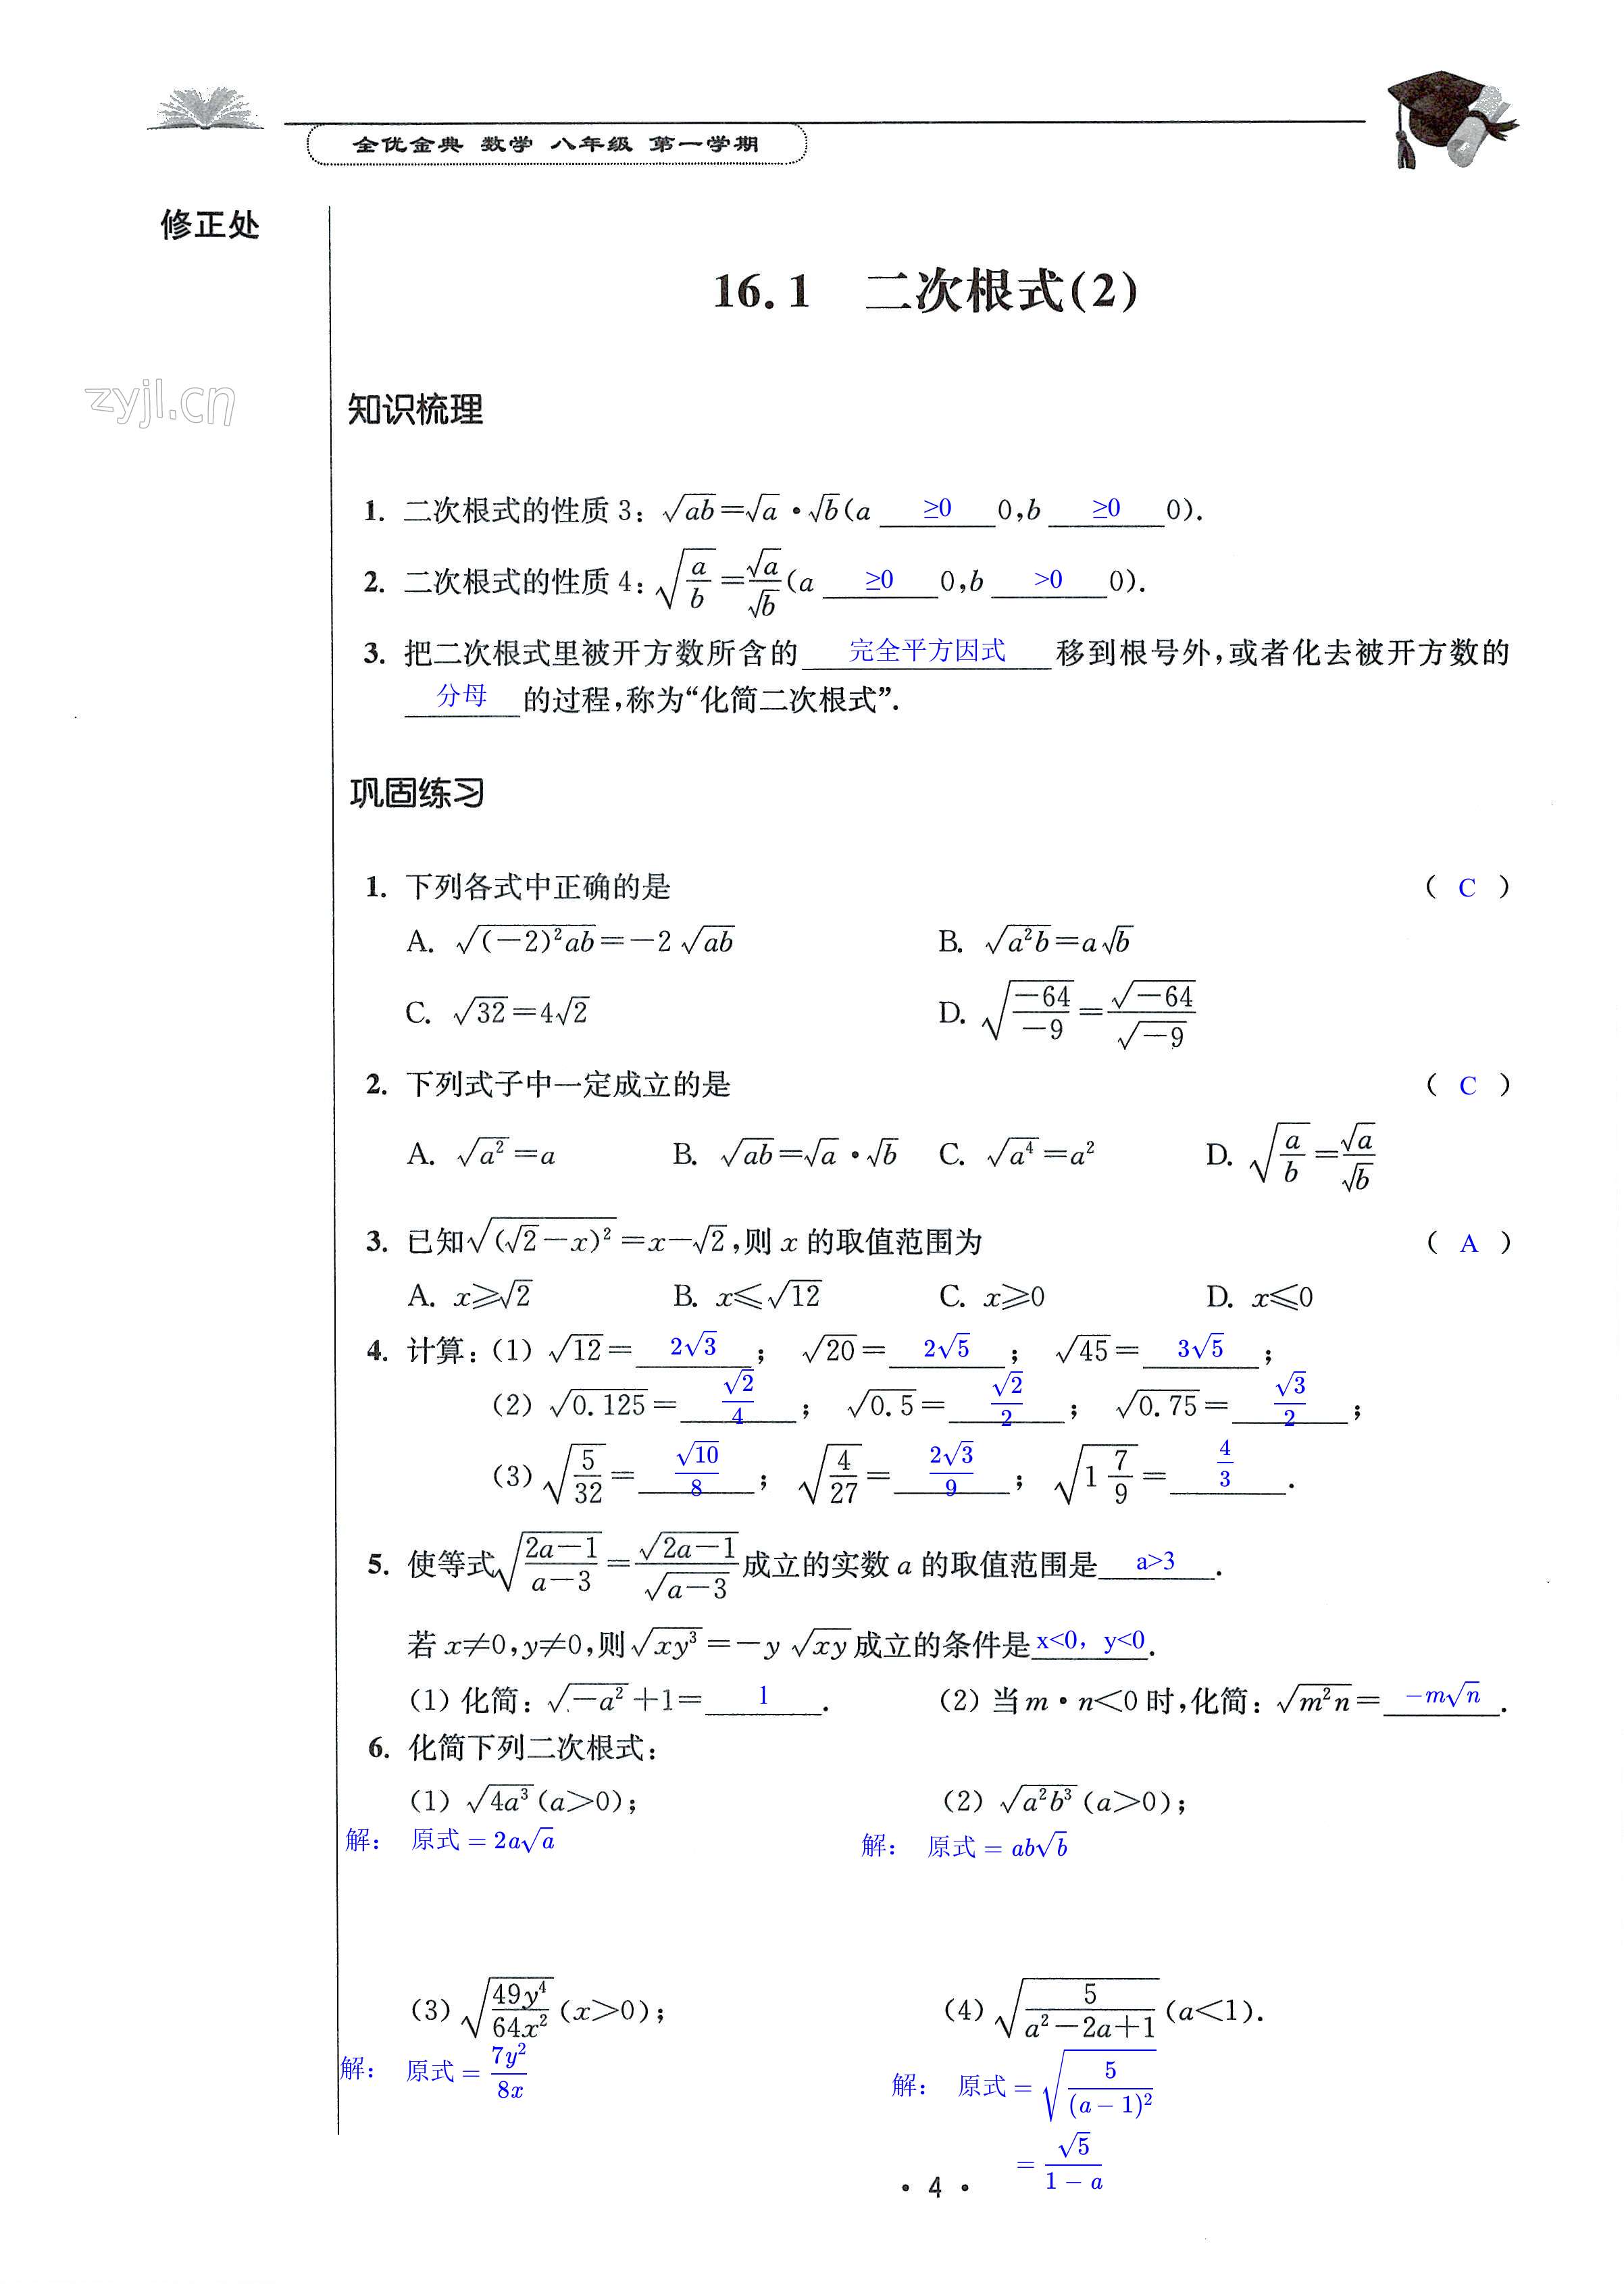 全优金典 数学 八年级 第一学期
修正处
16.1 二次根式(2)
zyjl.cn
知识梳理
1. 二次根式的性质 3: √(ab)=√a·√b(a ≥0 0,b ≥0 0).
2. 二次根式的性质 4: √(a/b)=√a/√b(a ≥0 0,b >0 0).
3. 把二次根式里被开方数所含的 完全平方因式 移到根号外,或者化去被开方数的
分母 的过程,称为“化简二次根式”.
巩固练习
1. 下列各式中正确的是 ( C )
A. √((-2)²ab)=-2√(ab) B. √(a²b)=a√b
C. √32=4√2 D. √(-64/-9)=√(-64)/√(-9)
2. 下列式子中一定成立的是 ( C )
A. √(a²)=a B. √(ab)=√a·√b C. √(a⁴)=a² D. √(a/b)=√a/√b
3. 已知√((√2-x)²)=x-√2,则 x 的取值范围为 ( A )
A. x≥√2 B. x≤√12 C. x≥0 D. x≤0
4. 计算:(1) √12= 2√3 ; √20= 2√5 ; √45= 3√5 ;
(2) √0.125= √2/4 ; √0.5= √2/2 ; √0.75= √3/2 ;
(3) √(5/32)= √10/8 ; √(4/27)= 2√3/9 ; √(1 7/9)= 4/3 .
5. 使等式√((2a-1)/(a-3))=√(2a-1)/√(a-3)成立的实数 a 的取值范围是 a>3 .
若 x≠0,y≠0,则√(xy³)=-y√(xy)成立的条件是 x<0, y<0 .
(1) 化简: √(-a²)+1= 1 . (2) 当 m·n<0 时,化简: √(m²n)= -m√n .
6. 化简下列二次根式:
(1) √(4a³)(a>0); (2) √(a²b³)(a>0);
解: 原式=2a√a 解: 原式=ab√b
(3) √(49y⁴/64x²)(x>0); (4) √(5/(a²-2a+1))(a<1).
解: 原式=7y²/8x 解: 原式=√(5/(a-1)²)
=√5/(1-a)
· 4 ·